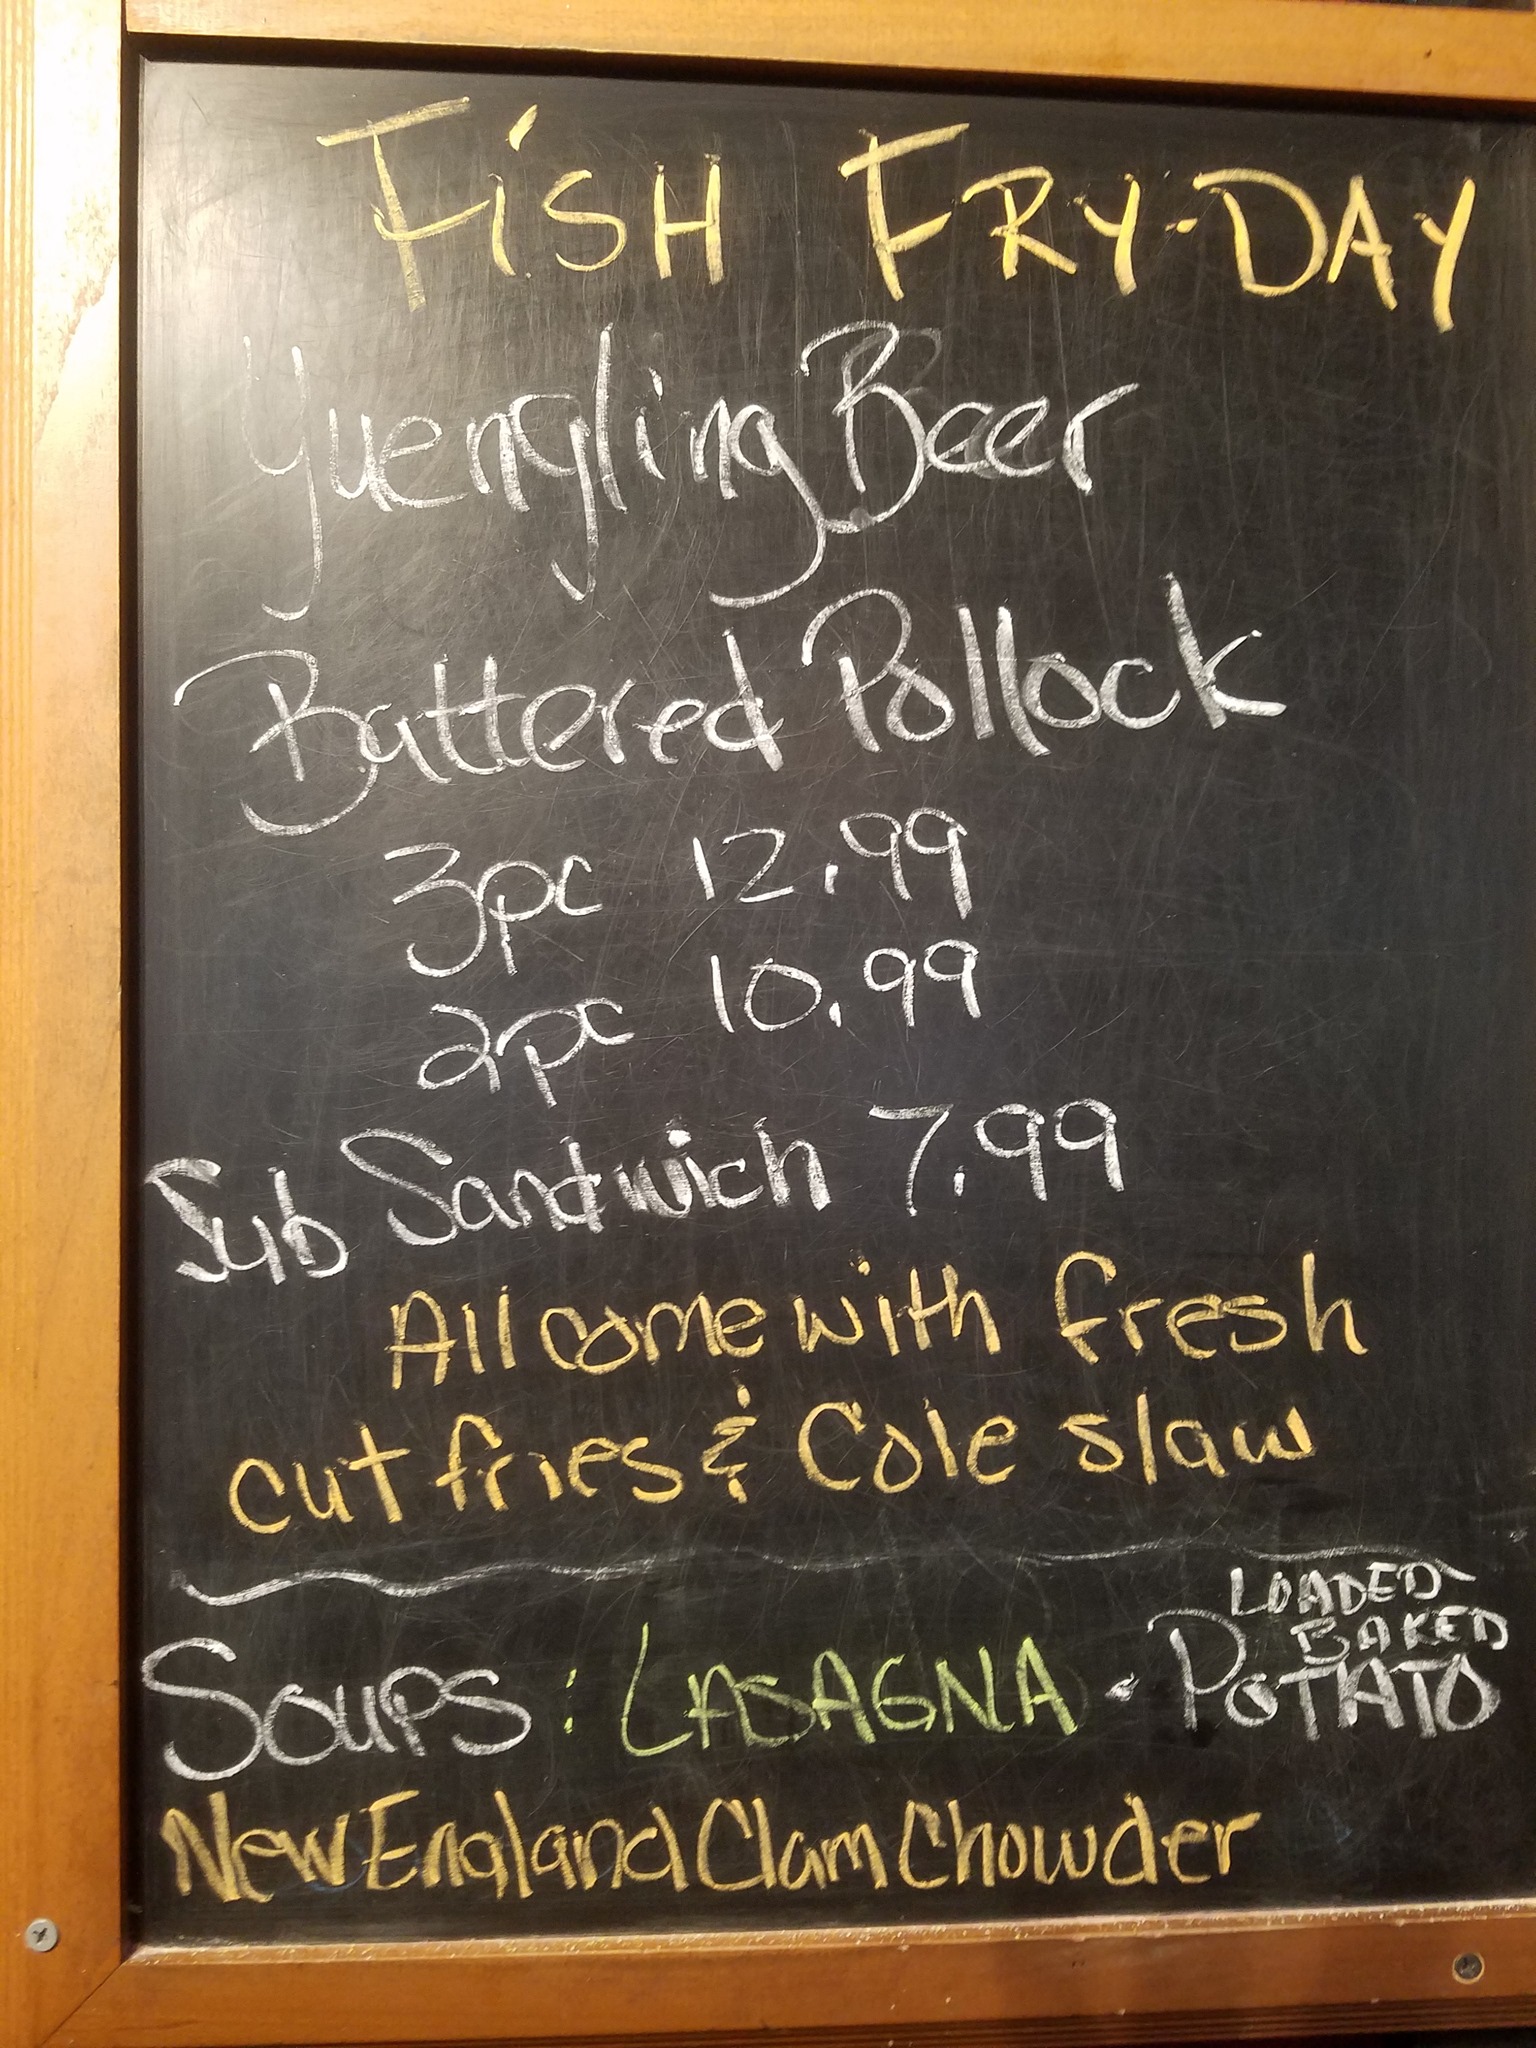 FiSH FRY-DAY
Yuengling Beer
Battered Pollock
3pc 12.99
2pc 10.99
Sub Sandwich 7.99
All come with fresh
cut fries & Cole slaw
SOUPS: LASAGNA • LOADED BAKED POTATO
New England Clam Chowder